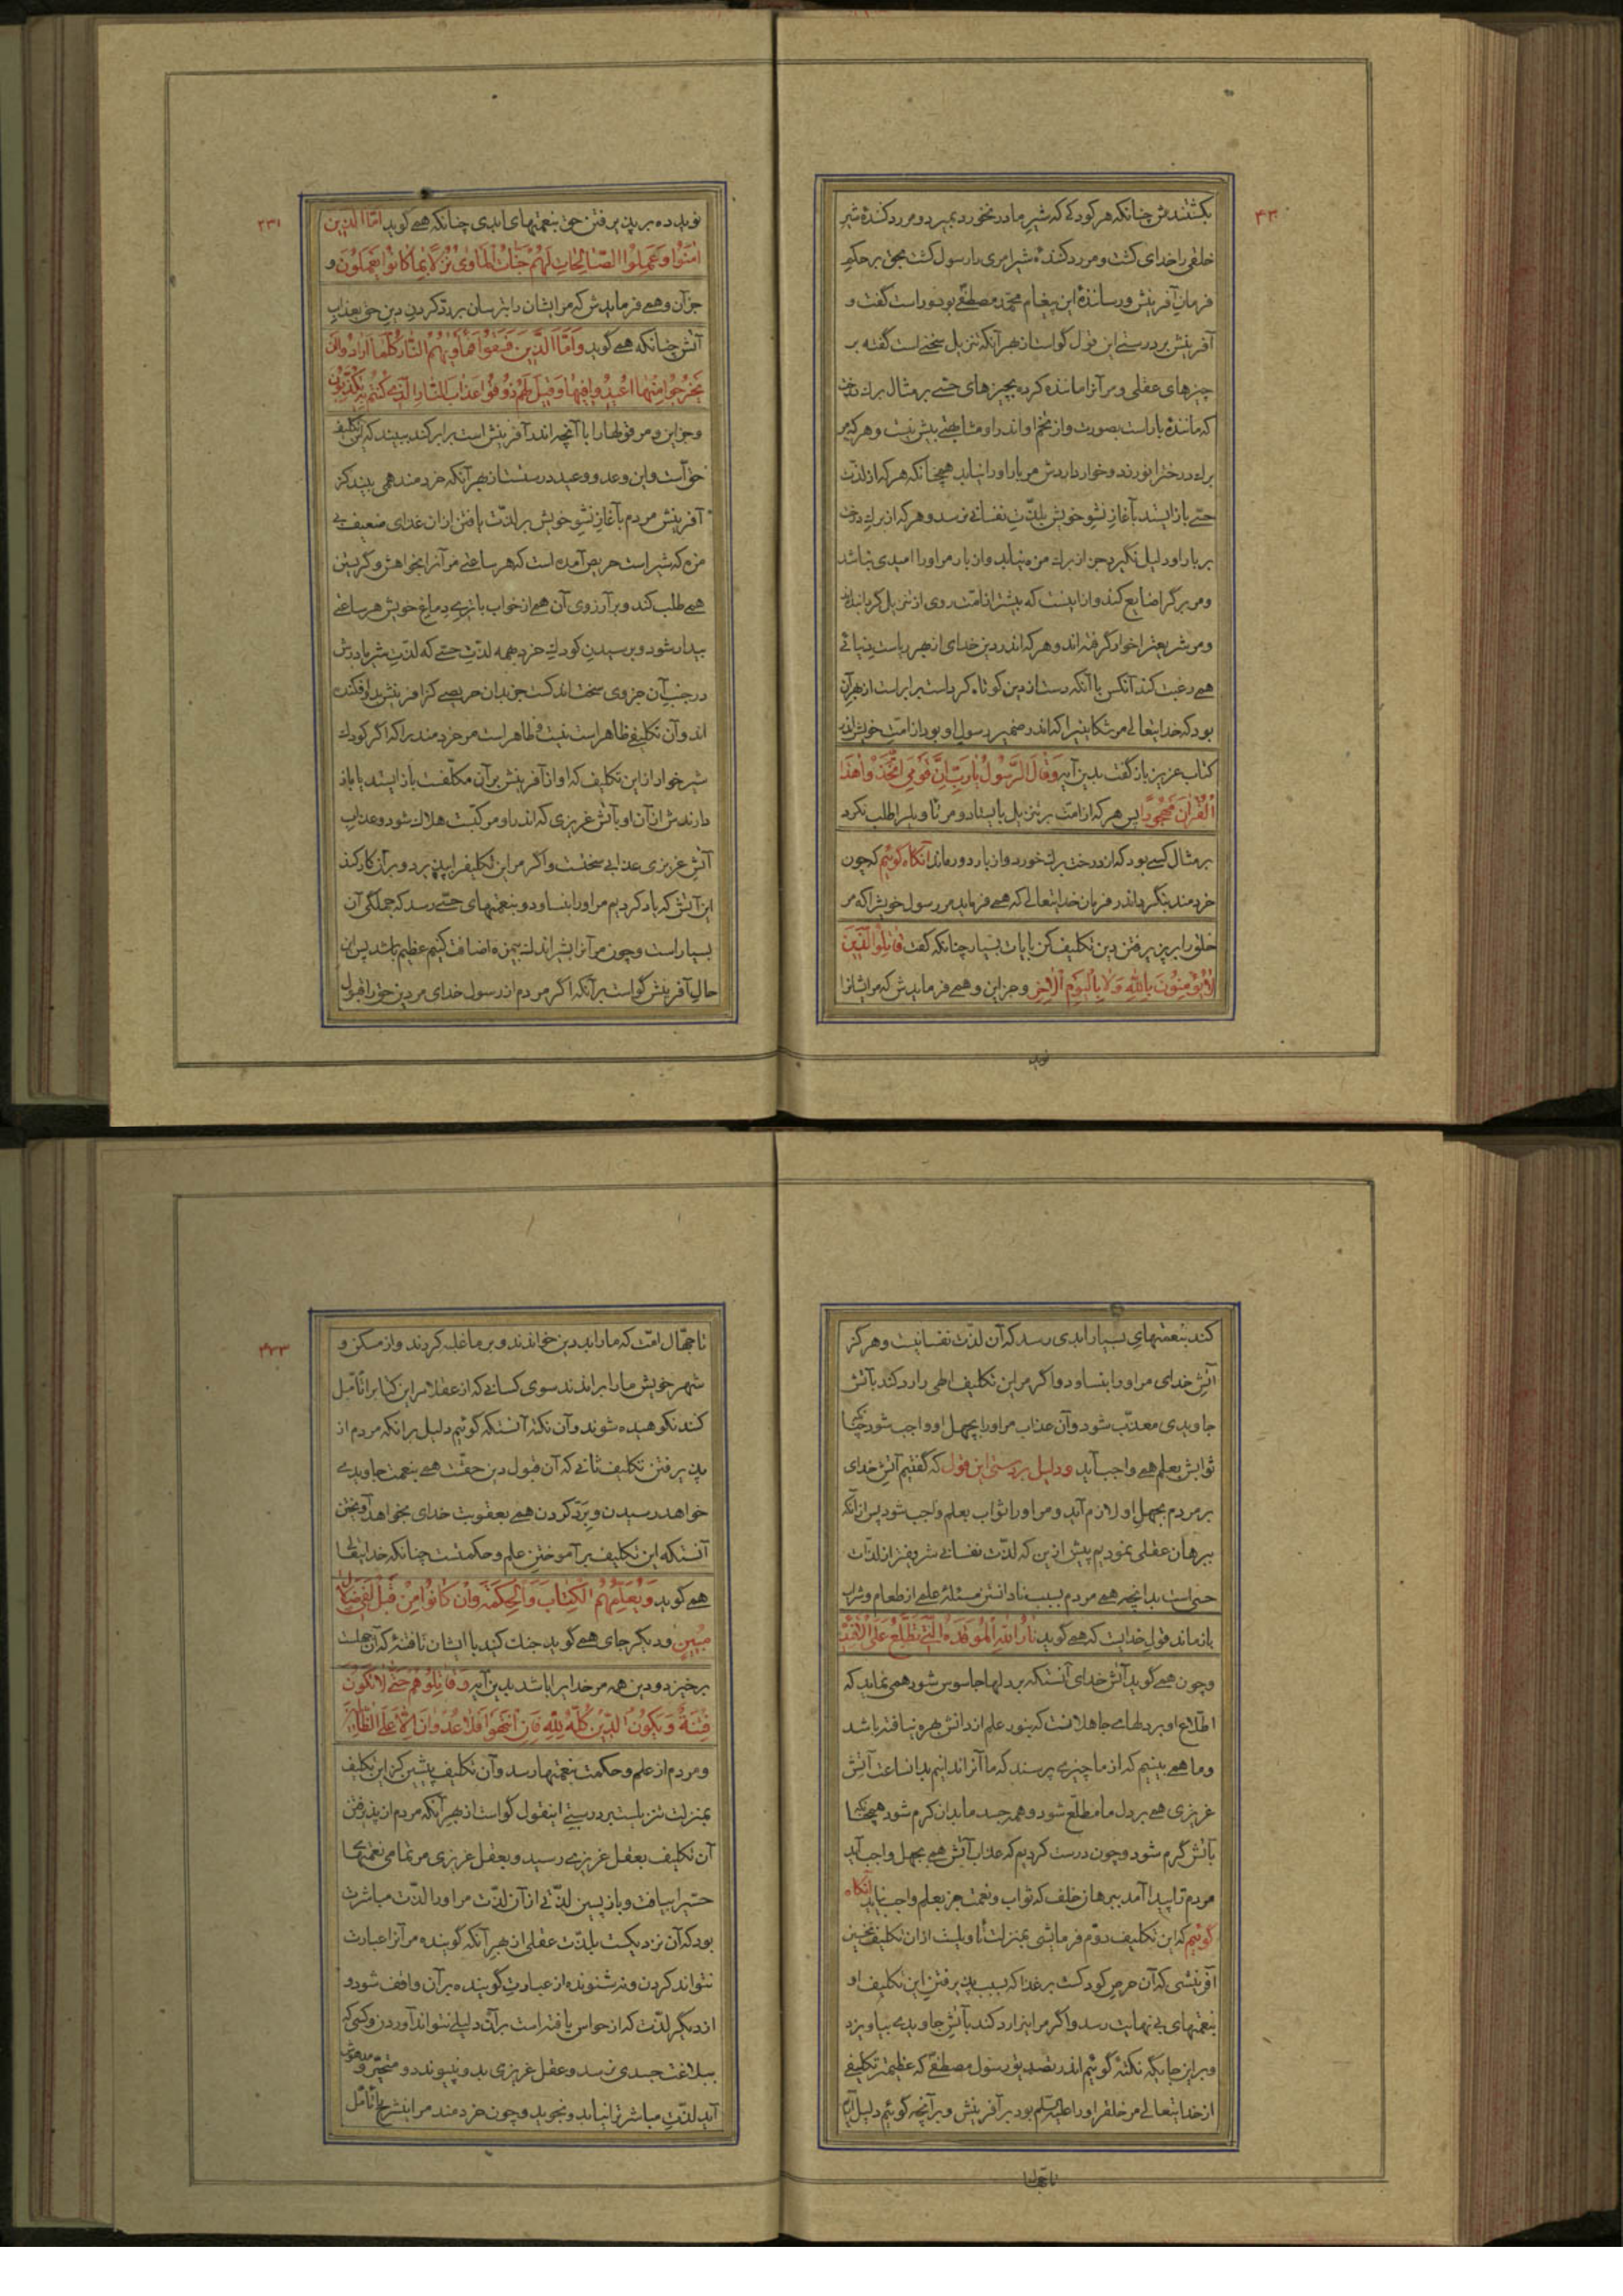 ۴۳۰
بکشندش چنانکه هر کودکی که شیر مادر نخورد بمیرد و مر رد کنندهٔ شیر
خلقی را خدای کشت و مر رد کنندهٔ شیر امری را رسول کشت بحق بر حکم
فرمان آفرینش و رسانندهٔ این پیغام محمد مصطفی بود و راست گفت و
آفرینش بر درستی این قول گواست از بهر آنکه تنزیل سخنی است گفته بر
چیزهای عقلی و مر آنرا مانده کرده بچیزهای حسی بر مثال برك درخت
که مانندهٔ بار است بصورت و از تخم او اندر او مشابهتی بیش نیست و هر که مر
برك درخترا نورزد و خوار داردش مر بار او را نیابد همچنانکه هر که از لذت
حسی باز ایستد بآغاز نشو خویش بلذت نفسانی نرسد و هر که از برك درخت
بر بار او دلیل نگیرد جز از برك مزه نیابد و از بار مر او را امیدی نباشد
و مر برگ را ضایع کند و از اینست که بیشتر از امت روی از تنزیل گردانیده‌اند
و مر شریعترا خوار گرفته‌اند و هر که اندر دین خدای از بهر ریاست دنیائی
همی رغبت کند آنکس با آنکه دست از دین کوتاه کرد است برابر است از بهر آن
بود که خدایتعالی مر شکایتیرا که اندر ضمیر رسول او بود از امت خویش اندر
کتاب عزیز باز گفت بدین آیه وَقَالَ الرَّسُولُ یَا رَبِّ اِنَّ قَوْمِی اتَّخَذُوا هٰذَا
الْقُرْاٰنَ مَهْجُورًا پس هر که از امت بر تنزیل بایستاد و مر تاویلرا طلب نکرد
بر مثال کسی بود که از درخت برك خورد و از بار دور ماند آنگاه گوئیم که چون
خردمند بنگرد اندر فرمان خدایتعالی که همی فرماید مر رسول خویش را که مر
خلق را بر پذیرفتن دین تکلیف کن بایات بسیار چنانکه گفت قَاتِلُوا الَّذِینَ
لَا یُؤْمِنُونَ بِاللّٰهِ وَلَا بِالْیَوْمِ الْاٰخِرِ و جز این و همی فرمایدش که مر ایشانرا
نوید
۲۳۱
نوید ده بر پذیرفتن حق بنعمتهای ابدی چنانکه همی گوید اَمَّا الَّذِینَ
اٰمَنُوا وَعَمِلُوا الصَّالِحَاتِ لَهُمْ جَنَّاتُ الْمَاْوٰی نُزُلًا بِمَا کَانُوا یَعْمَلُونَ و
جز آن و همی فرمایدش که مر ایشان را بترسان بر رد کردن دین حق بعذاب
آتش چنانکه همی گوید وَاَمَّا الَّذِینَ فَسَقُوا فَمَاْوٰیهُمُ النَّارُ کُلَّمَا اَرَادُوا اَنْ
یَخْرُجُوا مِنْهَا اُعِیدُوا فِیهَا وَقِیلَ لَهُمْ ذُوقُوا عَذَابَ النَّارِ الَّذِی کُنْتُمْ بِهِ تُکَذِّبُونَ
و جز این و مر قولها را با آنچه اندر آفرینش است برابر کند ببیند که این تکلیف
حق است و این وعد و وعید درستست از بهر آنکه خردمند همی بیند کز
آفرینش مردم بآغاز نشو خویش بر لذت یافتن از ان غذای ضعیف بی
مزه که شیر است حریص آمده است که هر ساعتی مر آنرا بخواهش و گریستن
همی طلب کند و بر آرزوی آن هم از خواب با تری دماغ خویش هر ساعتی
بیدار شود و برسیدن کودك خرد همه لذت حسی که لذت شیر مادرش
در جنب آن جزوی سخت اندکست جز بدان حریصی کز آفرینش بدو افکنده
اند و آن تکلیفی ظاهر است نیست و ظاهر است مر خردمند را که اگر کودك
شیر خوار از این تکلیف که او از آفرینش بر آن مکلفست باز ایستد یا باز
دارندش از آن او بآتش غریزی که اندر او مرکبست هلاك شود و عذاب
آتش غریزی عذابی سختست و اگر مر این تکلیف را بپذیرد و بر آن کار کند
این آتش که یاد کردیم مر او را نبساود و بنعمتهای حسی رسد که جملگی آن
بسیار است و چون مر آنرا بشیر اندك بی‌مزه اضافت کنیم عظیم باشد پس این
حال آفرینش گواست بر آنکه اگر مردم از رسول خدای مر دین حق را قبول
کند بنعمتهای بسیار ابدی رسد که آن لذت نفسانیست و هرگز
آتش خدای مر او را نبساود و اگر مر این تکلیف اطی را رد کند بآتش
جاویدی معذب شود و آن عذاب مر او را بجهل او واجب شود چنانکه
ثوابش بعلم همی واجب آید و دلیل بر درستی این قول که گفتیم آتش خدای
بر مردم بجهل او لازم آید و مر او را ثواب بعلم واجب شود پس از آنکه
ببرهان عقلی نمودیم پیش از این که لذت نفسانی شریفتر از لذات
حسی است بدانچه همی مردم بسبب نادانستن مسئلهٔ علمی از طعام و شراب
باز ماند قول خدایست که همی گوید نَارُ اللّٰهِ الْمُوقَدَةُ الَّتِی تَطَّلِعُ عَلَی الْاَفْئِدَةِ
و چون همی گوید آتش خدای آنستکه بر دلها جاسوس شود همی نماید که
اطلاع او بر دلهای جاهلانست که بنور علم از دانش بهره نیافته باشد
و ما همی بینیم که از ما چیزی پرسند که ما آنرا ندانیم بدانساعت آتش
غریزی همی بر دل ما مطلع شود و همه جسد ما بدان گرم شود همچنانکه
بآتش گرم شود و چون درست کردیم که عذاب آتش همی بجهل واجب آید
مردم را پیدا آمد ببرهان خلف که ثواب و نعمت جز بعلم واجب نیاید آنگاه
گوئیم که این تکلیف دوم فرمایشی بمنزلت تأویلست از ان تکلیف نخستین
آفرینشی که آن حرص کودکست بر غذا که بسبب پذیرفتن این تکلیف او
بنعمتهای بی نهایت رسد و اگر مر اینرا رد کند بآتش جاویدی بیاویزد
و بر این جایگه نکتهٔ گوئیم اندر تصدیق رسول مصطفی که عظیمتر تکلیفی
از خدایتعالی مر خلق را او را علیه السلم بود بر آفرینش و بر آنچه گوئیم دلیل آریم
تا جهال
۴۳۳
تا جهّال امّت که ما را بد دین خواندند و بر ما غلبه کردند و از مسکن و
شهر خویش ما را براندند سوی کسانی که از عقلا مر این کتابرا تأمّل
کنند نکوهیده شوند و آن نکته آنستکه گوئیم دلیل بر آنکه مردم از
پذیرفتن تکلیف ثانی که آن قبول دین حقست همی بنعمت جاویدی
خواهد رسیدن و برد کردن همی بعقوبت خدای بخواهد آویختن
آنستکه این تکلیف بر آموختن علم و حکمتست چنانکه خدایتعالی
همی گوید وَیُعَلِّمُهُمُ الْکِتَابَ وَالْحِکْمَةَ وَاِنْ کَانُوا مِنْ قَبْلُ لَفِی ضَلَالٍ
مُبِینٍ و دیگر جای همی گوید جنك کنید با ایشان تا فتنه که آن جهلست
برخیزد و دین همه مر خدایرا باشد بدین آیه وَقَاتِلُوهُمْ حَتّٰی لَا تَکُونَ
فِتْنَةٌ وَیَکُونَ الدِّینُ کُلُّهُ لِلّٰهِ فَاِنِ انْتَهَوْا فَلَا عُدْوَانَ اِلَّا عَلَی الظَّالِمِینَ
و مردم از علم و حکمت بنعمتها رسد و آن تکلیف پیشین کز این تکلیف
بمنزلت تنزیلست بر درستی اینقول گواست از بهر آنکه مردم از پذیرفتن
آن تکلیف بعقل غریزی رسید و بعقل غریزی مر تمامی نعمتهای
حسیرا بیافت و باز پسین لذتی از آن لذت مر او را لذت مباشرت
بود که آن نزدیکست بلذت عقلی از بهر آنکه گوینده مر آنرا عبارت
نتواند کردن و نه شنونده از عبارت گوینده بر آن واقف شود و
از دیگر لذت که از حواس یافته است بر آن دلیلی نتواند آوردن و کسی که
ببلاغت جسدی نرسد و عقل غریزی بدو نپیوندد و متحیر و مدهوش
آید لذت مباشرترا نیابد و نجوید و چون خردمند مر اینشرح را تأمل